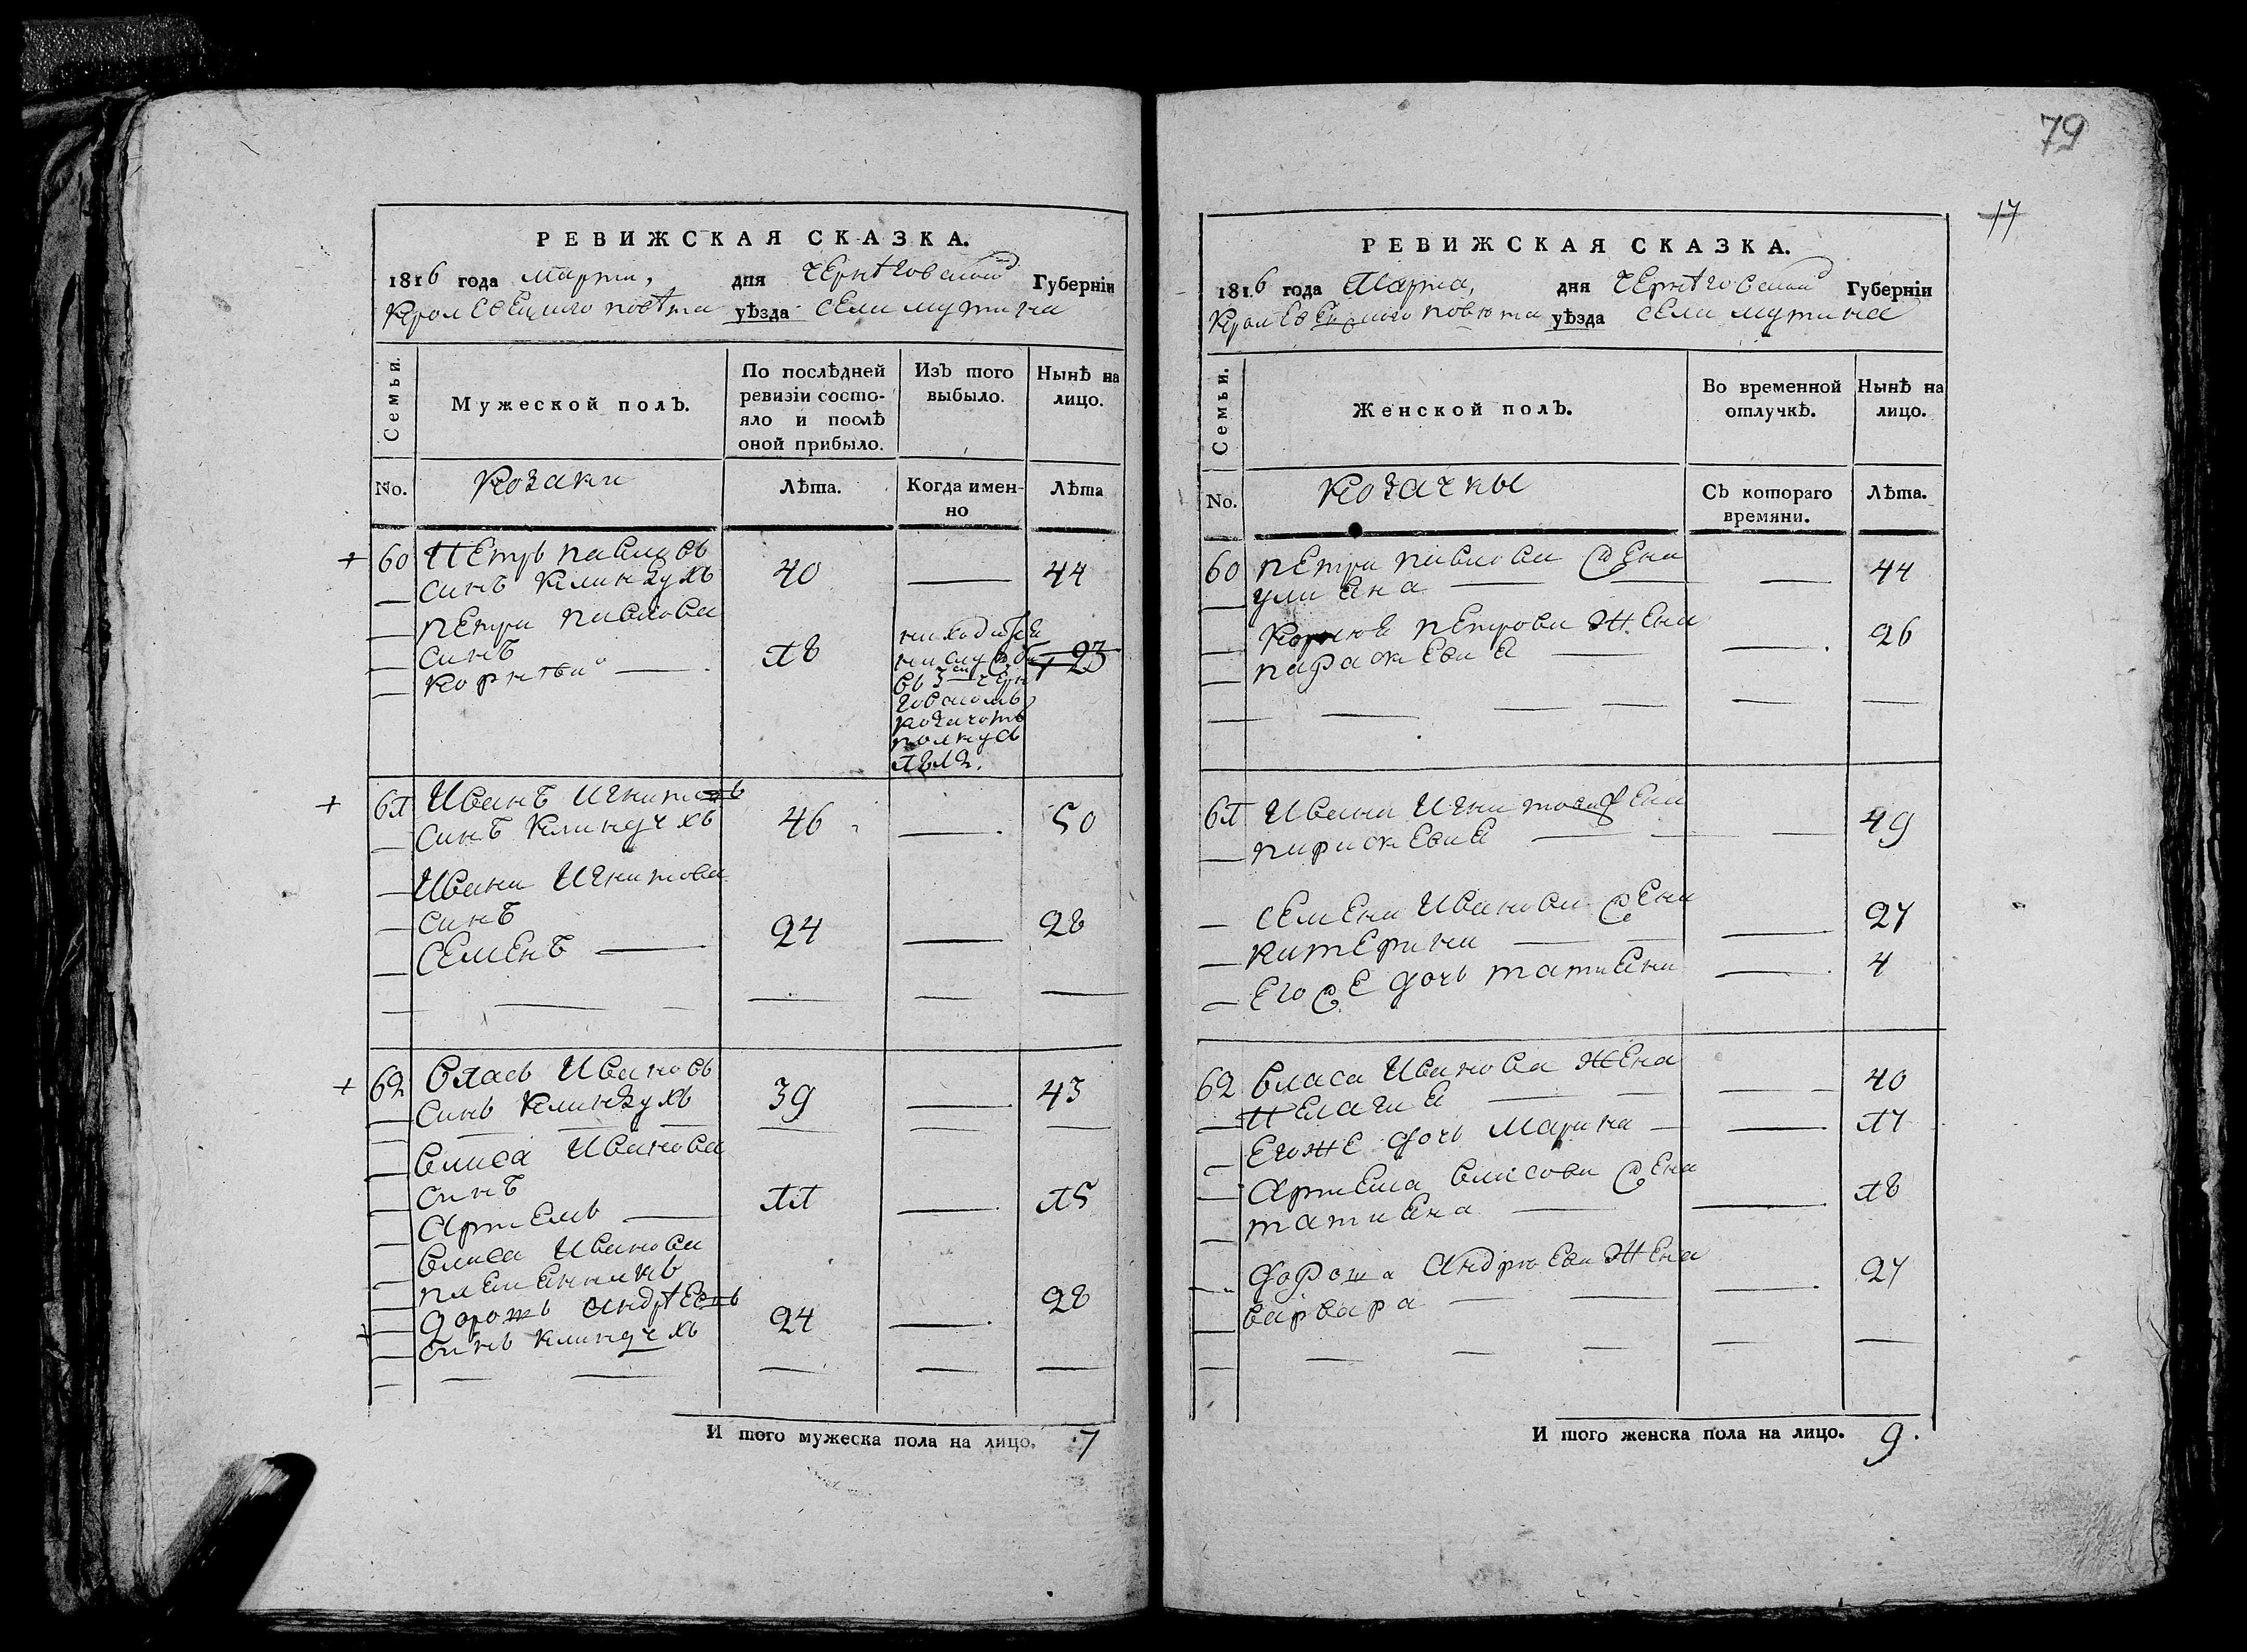 РЕВИЖСКАЯ СКАЗКА.
1816 года марта, дня Чернѣговской Губерніи
Кролевецкого повѣта уѣзда села мутина
Семьи.
Мужеской полъ.
По послѣдней ревизіи состо-
яло и послѣ
оной прибыло.
Изъ того
выбыло.
Нынѣ на
лицо.
No.
Козаки
Лѣта.
Когда имен-
но
Лѣта
60 Петръ павловъ
синъ Клиндухъ 40 44
петра павлова
синъ
корнѣй 18 23
находится
на службѣ
въ 3 черн
говскомъ
козачомъ
полку съ
1812.
61 Иванъ Игнатовъ
синъ Клиндухъ 46 50
Ивана Игнатова
синъ
Семенъ 24 28
62 Власъ Ивановъ
синъ Клиндухъ 39 43
власа Иванова
синъ
Артемъ 11 15
власа Иванова
племянникъ
дорошъ андрѣевъ
синъ клиндухъ 24 28
И того мужеска пола на лицо. 7
79
17
РЕВИЖСКАЯ СКАЗКА.
1816 года Марта, дня Чернѣговской Губерніи
Кролевецкого повюта уѣзда села мутина
Семьи.
Женской полъ.
Во временной
отлучкѣ.
Нынѣ на
лицо.
No.
Козачкы
Съ котораго
времяни.
Лѣта.
60 петра павлова жена
улияна 44
Корнюя петрова жена
параскевия 26
61 Ивана Игнатова жена
параскевия 49
семена Иванова жена
катерина 27
его же дочь татияна 4
62 власа Иванова жена
Пелагия 40
Его же дочь Марина 17
Артема власова жена
татияна 18
дороша Андрюева жена
варвара 27
И того женска пола на лицо. 9.